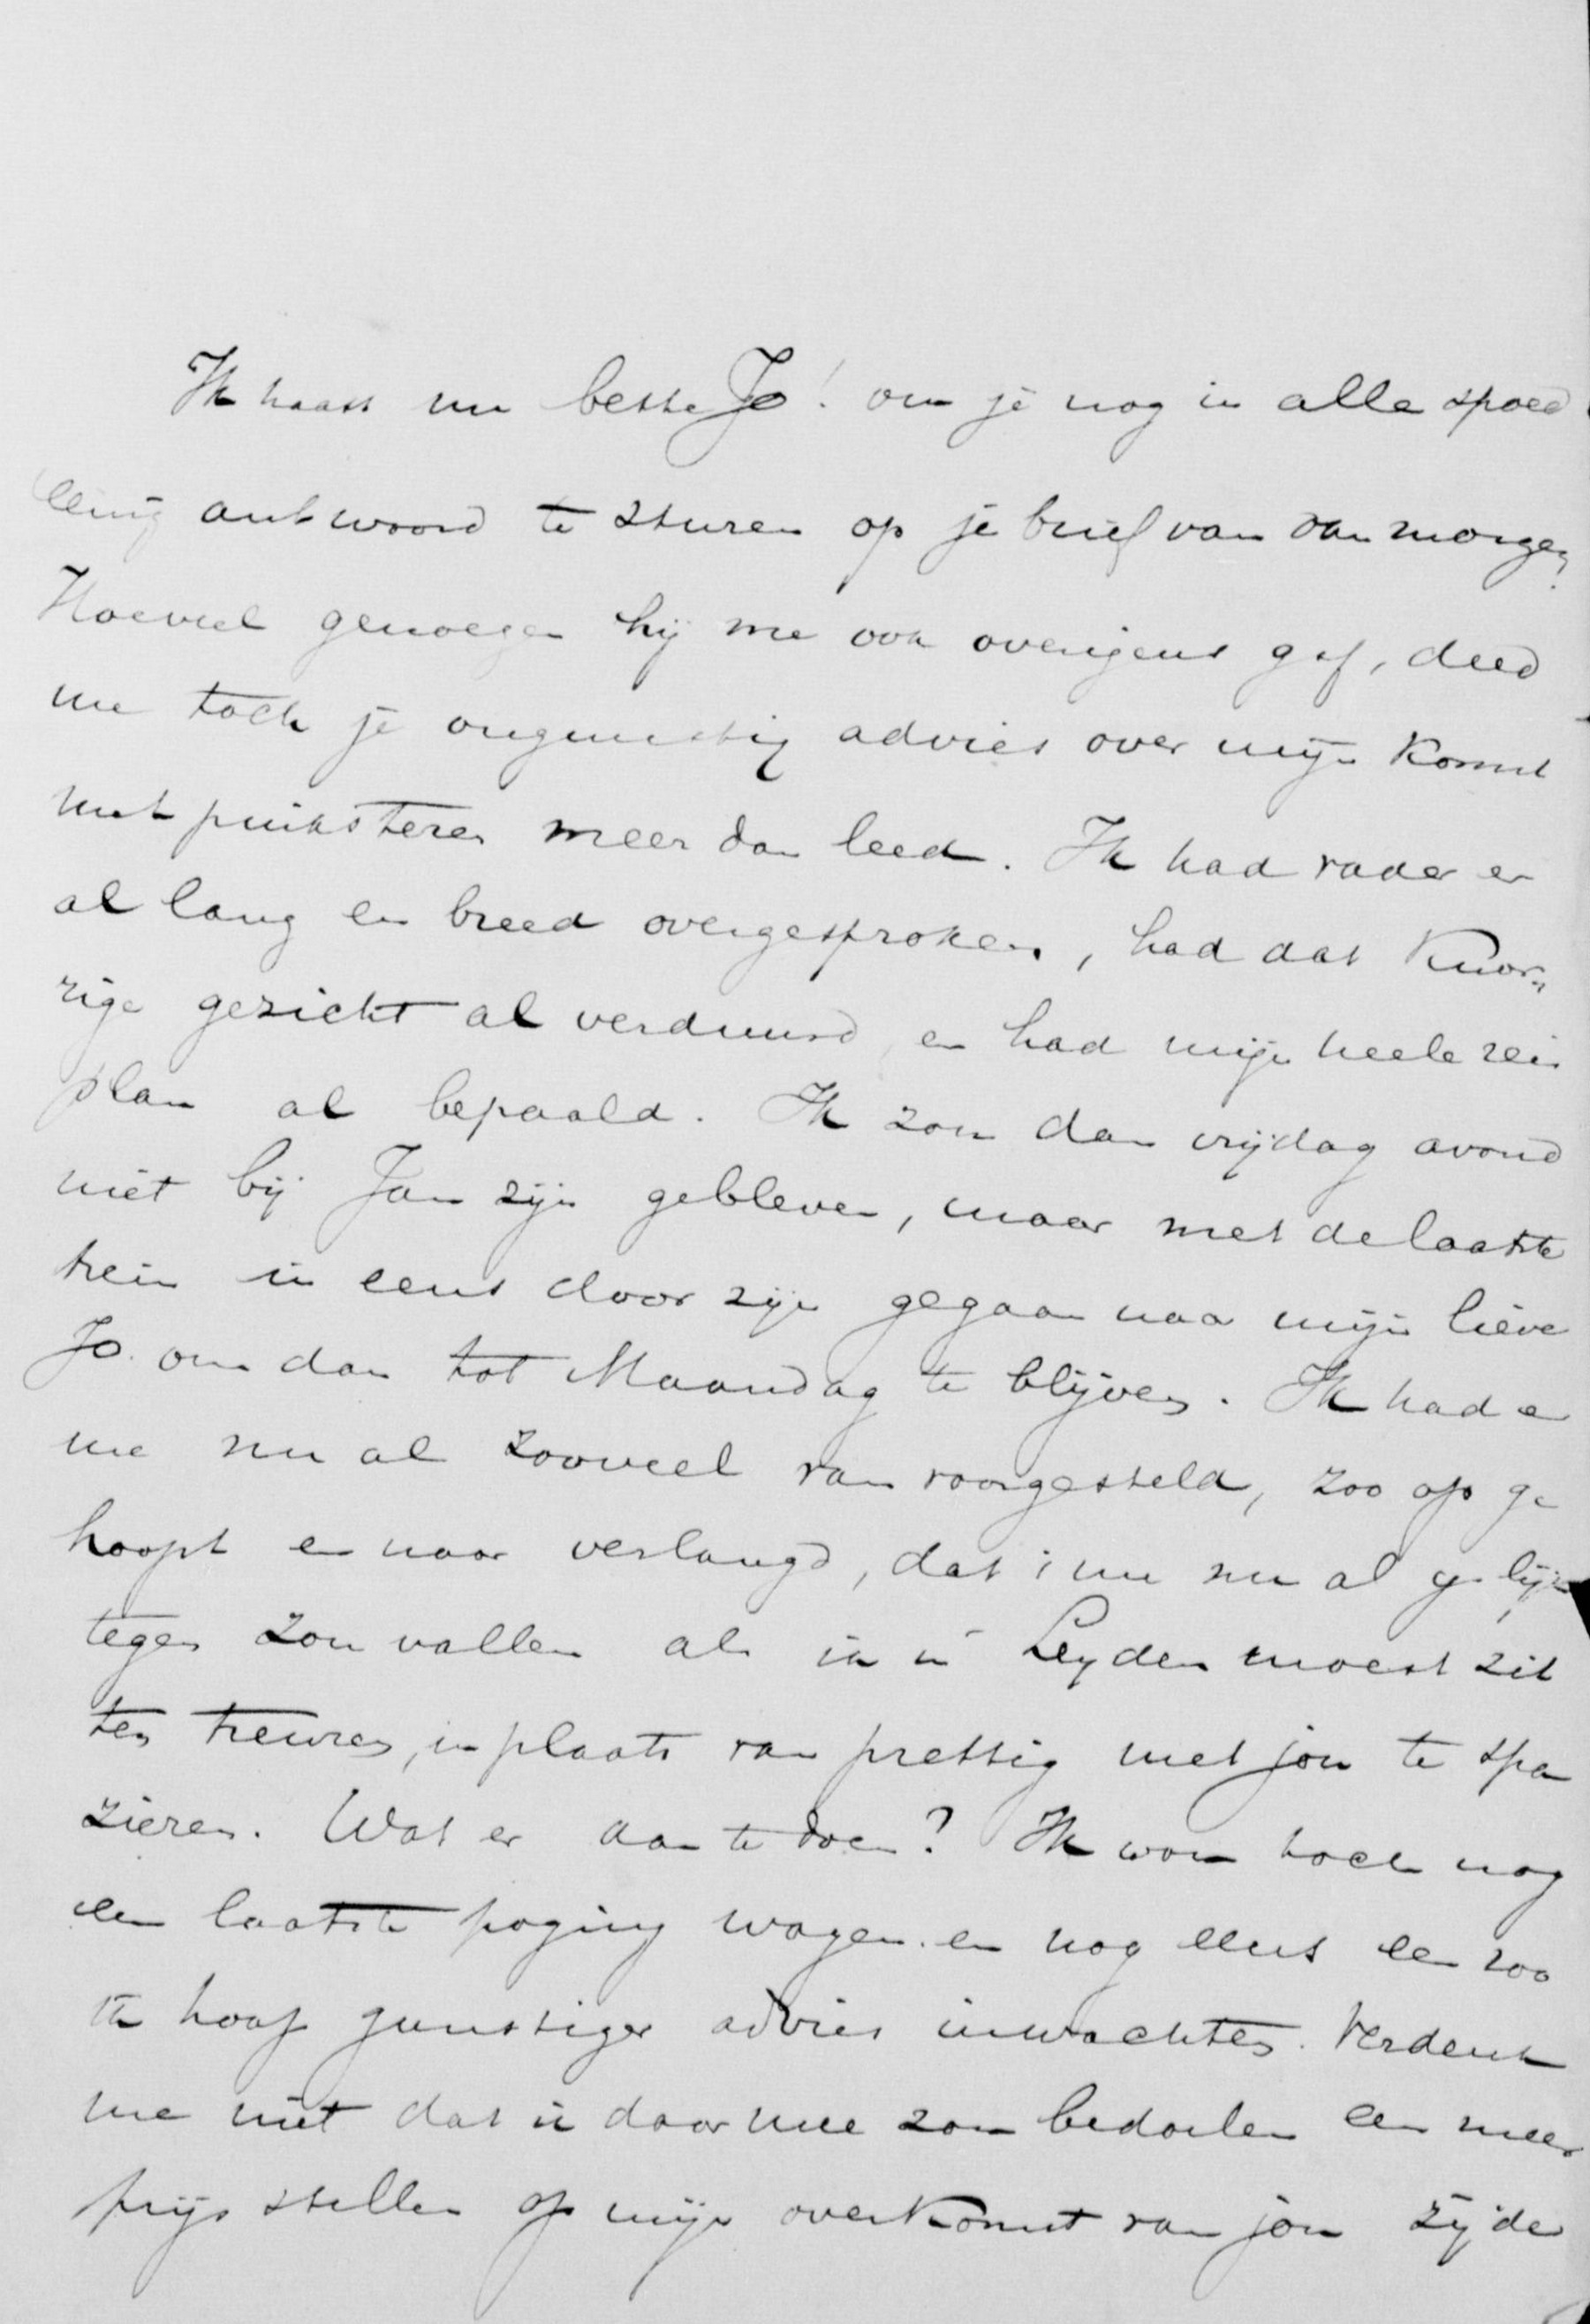 Ik haast me beste Jo! om je nog in alle spoed
eenig antwoord te sturen op je brief van van morgen.
Hoeveel genoegen hij me ook overigens gaf, deed
me toch je ongunstig advies over mijn komst
met pinksteren meer dan leed. Ik had vader er
al lang en breed over gesproken, had dat knor„
rige gezicht al verduurd, en had mijn heele reis
plan al bepaald. Ik zou dan vrijdag avond
niet bij Jan zijn gebleven, maar met de laatste
trein in eens door zijn gegaan naar mijn lieve
Jo. om dan tot Maandag te blijven. Ik had er
me nu al zooveel van voorgesteld, zoo op ge
hoopt en naar verlangd, dat 't me nu al
tegen zou vallen als ik in Leyden moest zit
ten treuren, in plaats van prettig met jou te spa
zieren. Wat er aan te doen? Ik wou toch nog
een laatste poging wagen en nog eens een zoo
ik hoop gunstiger advies inwachten. Verdenk
me niet dat ik daar mee zou bedoelen een meer
prijs stellen op mijn overkomst van jou zijde